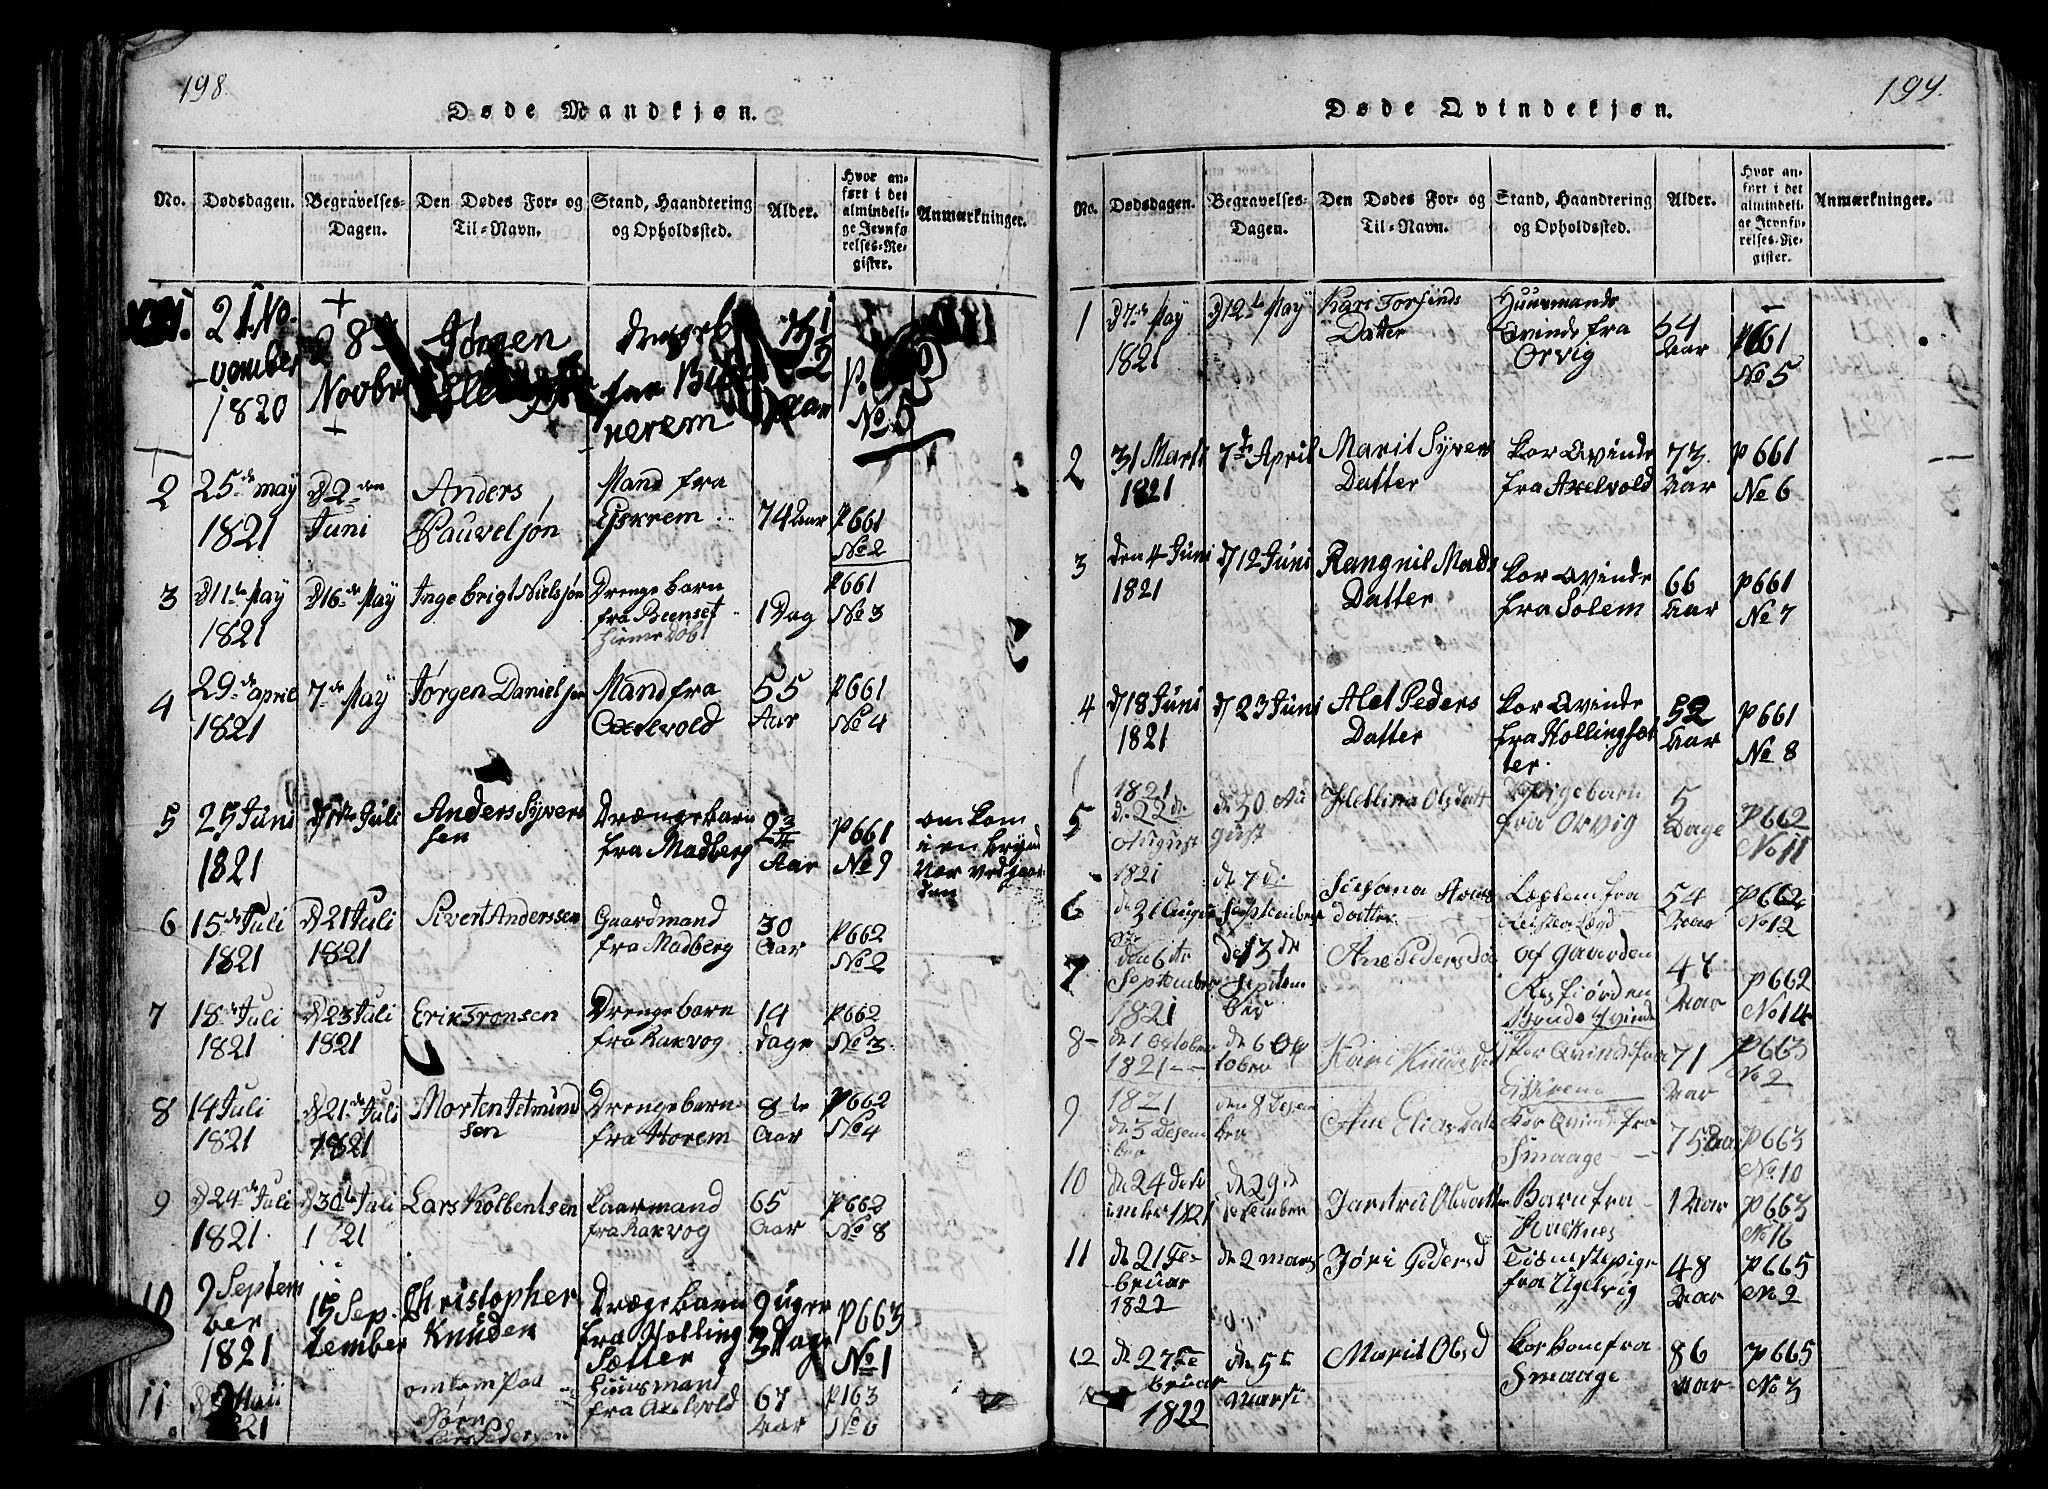 198.
Døde Mandkjøn.
No.
Dødsdagen.
Begravelses-
Dagen.
Den Dødes For- og
Til-Navn.
Stand, Haandtering
og Opholdssted.
Alder.
Hvor an-
ført i det
almindeli-
ge Jevnfø-
relses-Re-
gister.
Anmærkninger.
21 No-
vember
1820
28
Novbr
Jørgen
fra
nerem
1/2
Aar
No 5
2
25de may
1821
D 2den
Juni
Anders
Pauvelsøn
Mand fra
Eskrem
74 Aar
P 661
No 2
3
D 11te May
1821
D 16de May
Ingebrigt Nielsøn
Drenge barn
fra
1 Dag
P 661
No 3
4
29de april
1821
7de May
Jørgen Danielsen
Mand fra
Axelvold
55
Aar
P 661
No 4
5
25 Juni
1821
Juli
Anders Syvert
sen
Drængebarn
fra Madberg
2 3/4
Aar
P 661
No 9
omkom
i en brynd
ved gaar
den
6
15de Juli
1821
D 21 Juli
1821
Sivert Anderssen
Gaardmand
fra Madberg
30
Aar
P 662
No 2
7
18de Juli
1821
D 23 Juli
1821
Erik Tronsen
Drengebarn
fra Rakvog
14
dage
P 662
No 3
8
14 Juli
1821
D 21de Juli
1821
Morten Jetmund
sen
Drengebarn
fra Horem
8te
Aar
P 662
No 4
9
D 24de Juli
1821
D 30te Juli
1821
Lars Kolbentsen
Kaarmand
fra Rakvog
65
Aar
P 662
No 8
10
9 Septem
ber
1821
15 Sep-
tember
Christopher
Knudsen
Drægebarn
fra Holling
Sætter
9 uger
3 Dage
P 663
No 1
11
omkom paa
Pedersen
Huusmand
fra Axelvold
67
Aar
P 163
No 6
199.
Døde Qvindekjøn.
No.
Dødsdagen.
Begravelses-
Dagen.
Den Dødes For- og
Til-Navn.
Stand, Haandtering
og Opholdssted.
Alder.
Hvor an-
ført i det
almindeli-
ge Jevnfø-
relses-Re-
gister.
Anmærkninger.
1
D 7de May
1821
D 12te May
Kari Torfinds
Datter
Huusmands
Qvinde fra
Orvig
54
Aar
P 661
No 5
2
31 Marti
1821
7de April
Marit Syvers
Datter
Kor Qvinde
fra Axelvold
73
Aar
P 661
No 6
3
den 4 Juni
1821
D 12 Juni
Rangnil Mads
Datter
Kor Qvinde
fra Solem
66
Aar
P 661
No 7
4
D 18 Juni
1821
D 23 Juni
Alet Peders
Datter
Kor Qvinde
fra Hollingset
ter.
52
Aar
P 661
No 8
5
1821
de 22 de
August
de 30 Au
gust
Hellina Olsdatt
Pigebarn
fra Orvig
5
Dage
P 662
No 11
6
1821
de 21 Augu
de 7 de
September
datter
fra
Lægd
54
Aar
P 662
No 12
7
den 6te
September
1821
de 13 de
Septem
ber
Ane Pedersda
af Gaarden
Bonde Qvinde
47
Aar
P 662
No 14
8
de 1 October
1821
de 6 Oc
tober
Kari Knudsda
Kor Qvinde fra
71
Aar
P 663
No 2
9
1821
de 3 Desem
ber
den 8 Desem
ber
Ane Eliasdatt
Kor Qvinde fra
Smaage
75 Aar
P 663
No 10
10
de 24 des
ember 1821
de 29 de
desember
Olsdatter
Barn fra
Hacknes
1 Aar
P 663
No 16
11
de 21 Fe-
bruar
1822
de 2 mars
Jøri Pedersd
Tienistepige
fra Ugelvig
48
Aar
P 665
No 2
12
de 27 Fe
bruar
1822
de 5te
Marsi
Marit Olsd
Kor kone fra
Smaage
86
Aar
P 665
No 3